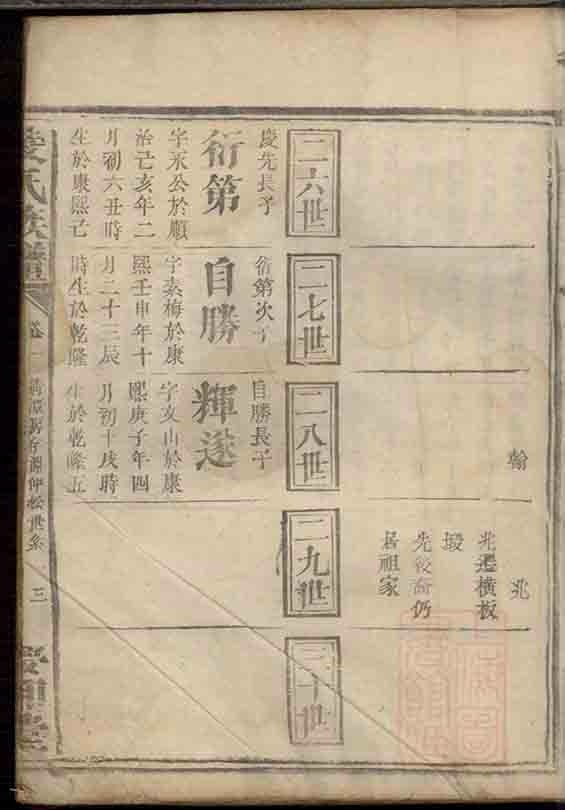 翰
兆
兆遷橫板
塅
先後裔仍
居祖家
二六世
二七世
二八世
二九世
三十世
慶先長子
衍第
字永公於順
治己亥年二
月初六丑時
生於康熙己
衍第次子
自勝
字素梅於康
熙壬申年十
月二十三辰
時生於乾隆
自勝長子
輝遂
字文山於康
熙庚子年四
月初十戌時
生於乾隆五
氏族譜
卷一
三